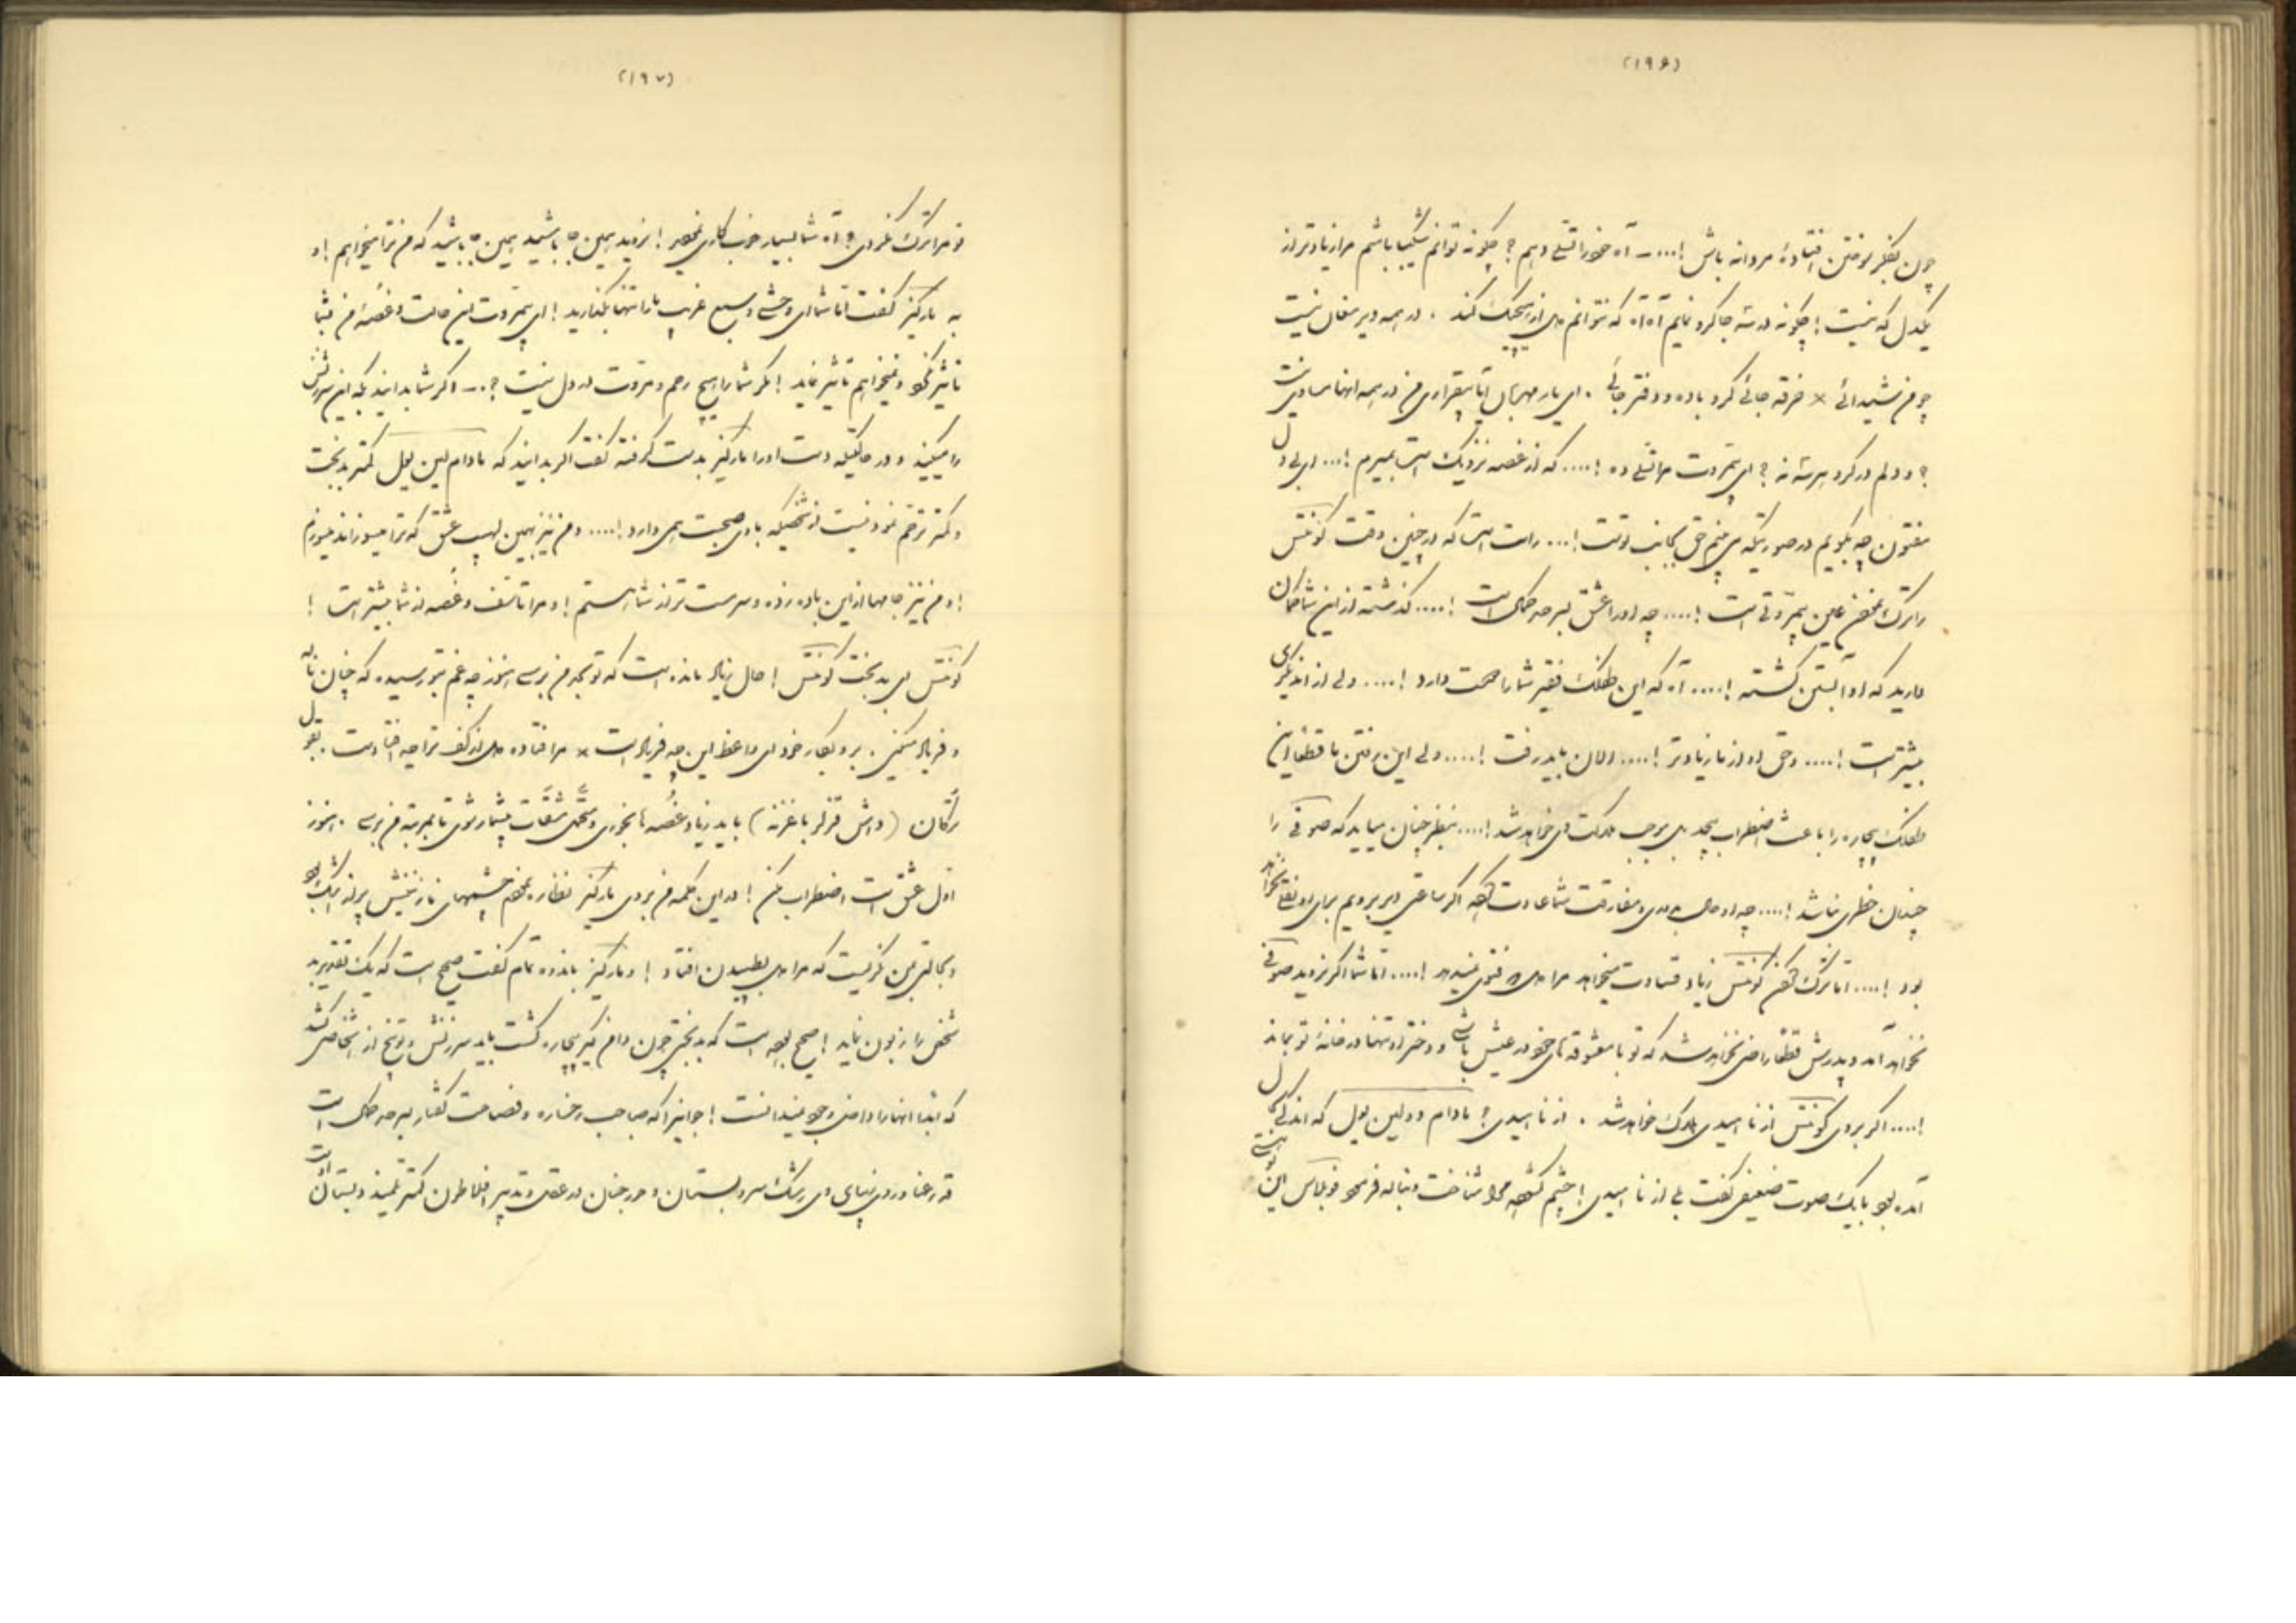 (۱۹۶)
چون بفکر سوختن افتادهٔ مردانه باش !.... ـ آه خود را تسلی دهم ؟ چگونه توانم شکیبا باشم مرا زیادتر از
یکدل که نیست ! چگونه در سه جا گرو نمایم آه آه که نتوانم دل از هیچیک کند . در همه دیر مغان نیست
چو من شیدائی × خرقه جائی گرو باده و دفتر جائی . ای یار مهربان آیا بیقراری من در همه اینها مساوی نیست
؟ و دلم در گرو هر سه نه ؟ ای بیمروت مرا تسلی ده !.... که از غصه نزدیک است بمیرم !... ای بی دل
مفتون چه بگویم در صورتیکه می بینم حق بجانب توست !... راست است که در چنین وقت کونتس
را ترک نمودن عین بیمروتی است !.... چه او را عشق بسر حد کمال است !.... گذشته از این شما گمان
دارید که او آبستن گشته !.... آه که این طفلک فقیر شما را صحبت دارد !.... ولی از اندیگری
بیشتر است !.... و حق او از ما زیادتر !.... الان باید رفت !.... ولی این رفتن ما قطعا این
طفلک بیچاره را باعث اضطراب بیحد بل موجب هلاکت وی خواهد شد !.... بنظر چنان میاید که صوفی را
چندان خطری نباشد !.... چه او مدتی بدوری و مفارقت شما عادت کرده اگر ساعتی دیر برویم برای او نقلی نخواهد
بود !.... اما ترک گفتن کونتس زیاد قساوت میخواهد مرا دل فتوی نمیدهد !.... اما شما اگر نروید صوفی
نخواهد آمد و پدرش قطعا راضی نخواهد شد که تو با معشوقه های خود در عیش باشی و دختر او تنها در خانهٔ تو بماند
!.... اگر بروی کونتس از نا امیدی هلاک خواهد شد . از نا امیدی ؟ مادام دولین یول که اندکی بحال
آمده بود با یک صوت ضعیفی گفت بلی از نا امیدی ! چشم گشوده مرا شناخت و ناله
(۱۹۷)
تو مرا ترک نکردی ؟ آه شما بسیار خوب کاری نمودید ! نروید همین جا باشید همین جا باشید که من ترا میخواهم ! و
به مارکیز گفت اما شما ای وحشی و سبع غریب ما را تنها بگذارید ! ای بیمروت این حالت و غصهٔ من بشما
تأثیر نکرد و نمیخواهم تأثیر نماید ! مگر شما را هیچ رحم و مروت در دل نیست ؟.... اگر شما بدانید که این سرزنش
را میکنید و در حالتیکه دست او را مارکیز بدست گرفته گفت اگر بدانید که مادام لین یول کمتر بدبخت
و کمتر ترحم نمودنیست از شخصیکه با وی صحبت همی دارد !.... و من نیز بهمین لهیب عشق که ترا میسوزاند میسوزم
! و من نیز جامها از این باده زده و سرمست تر از شما هستم ! و مرا تأسف و غصه از شما بیشتر است !
کونتس ای بدبخت کونتس ! حال زیاد مانده است که تو بمن برسی هنوز چه غم بتو رسیده که چنان ناله
و فریاد میکنی . برو بکار خود ای واعظ این چه فریاد است × مرا فتاده دل از کف ترا چه افتادست . بقول
ترکان (داش قزلر باغرنه) باید زیاد غصه ها بخوری و متحمل مشقات بیشمار شوی تا بمرتبهٔ من برسی . هنوز
اول عشق است اضطراب مکن ! در این کلمه من بروی مارکیز نظاره نمودم چشمهای نازنینش پر از اشک بود
و بحالتی بمن نگریست که مرا دل بطپیدن افتاد ! و مارکیز باندوه تمام گفت صحیح است که یک تقدیر بد
شخص را زبون نماید ! صحیح بوده است که بدبختی چون دامن گیر بیچاره گشت باید سرزنش و توبیخ از اشخاصی کشد
که ابدا آنها را داخل وجود نمیدانست ! جوانیرا که صباحت رخساره و فصاحت گفتار بسر حد کمال است
قد رعنا و روی زیبای وی رشک سرو بستان و حور جنان در عقل و تدبیر افلاطون کمتر تلمیذ دبستان اوست